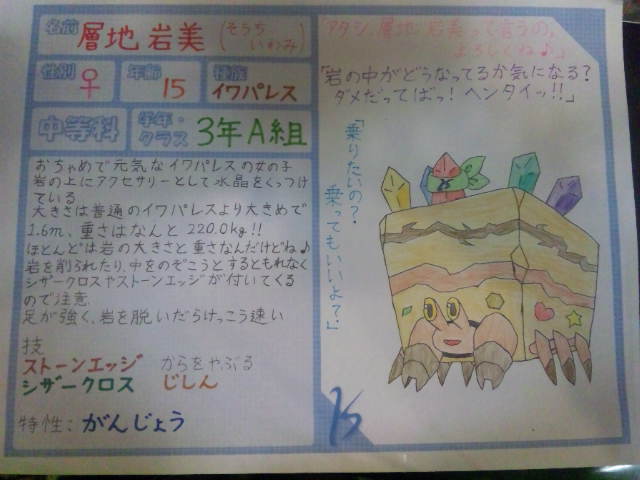 名前 層地 岩美 (そうち いわみ)
性別 ♀ 年齢 15 種族 イワパレス
中等科 学年・クラス 3年A組
おちゃめで元気なイワパレスの女の子
岩の上にアクセサリーとして水晶をくっつけ
ている
大きさは普通のイワパレスより大きめで
1.6m、重さはなんと220.0kg!!
ほとんどは岩の大きさと重さなんだけどね♪
岩を削られたり、中をのぞこうとするともれなく
シザークロスやストーンエッジが付いてくる
ので注意
足が強く、岩を脱いだらけっこう速い
技
ストーンエッジ からをやぶる
シザークロス じしん
特性: がんじょう
「アタシ、層地 岩美って言うの、
よろしくね♪」
「岩の中がどうなってるか気になる?
ダメだってばっ! ヘンタイッ!!」
「乗りたいの?
乗ってもいいよ?」